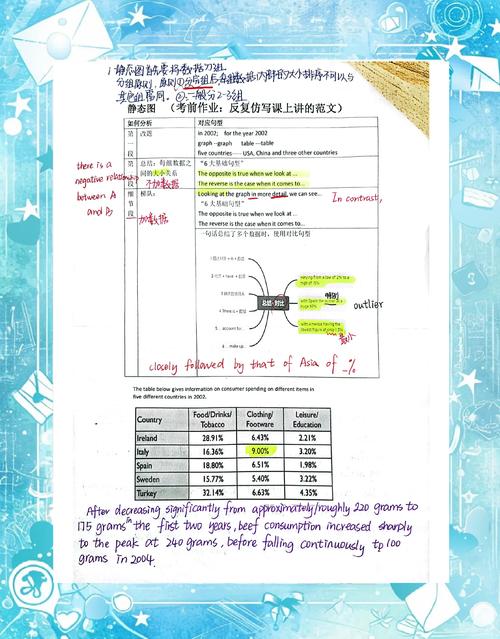 1 静态图首先要将数据分组
分组原则,原则①分完组后每组数据内部的大小排序不可以与
其他组相同. ②一般分2-3组
静态图 (考前作业:反复仿写课上讲的范文)
如何分析 对应句型
第一段 改题 in 2002; for the year 2002
graph→graph table→table
five countries — USA, China and three other countries
第二段 总结:每组数据之间的大小关系 不加数据 "6 大基础句型"
The opposite is true when we look at ...
The reverse is the case when it comes to...
there is a
negative relationship
between A
and B
细节段 梯队: 加数据 Looking at the graph in more detail, we can see... In contrast,
"6 大基础句型"
The opposite is true when we look at ...
The reverse is the case when it comes to...
一句话总结了多个数据时,使用对比句型
总结+对比
5. account for...
6. make up...
varying from a low of 2% to a high of 15%
outlier
最小
closely followed by that of Asia of _%
The table below gives information on consumer spending on different items in
five different countries in 2002.
Country Food/Drinks/Tobacco Clothing/Footware Leisure/Education
Ireland 28.91% 6.43% 2.21%
Italy 16.36% 9.00% 3.20%
Spain 18.80% 6.51% 1.98%
Sweden 15.77% 5.40% 3.22%
Turkey 32.14% 6.63% 4.35%
After decreasing significantly from approximately/roughly 220 grams to
175 grams in the first two years, beef consumption increased sharply
to the peak at 240 grams, before falling continuously to 100
grams in 2004.